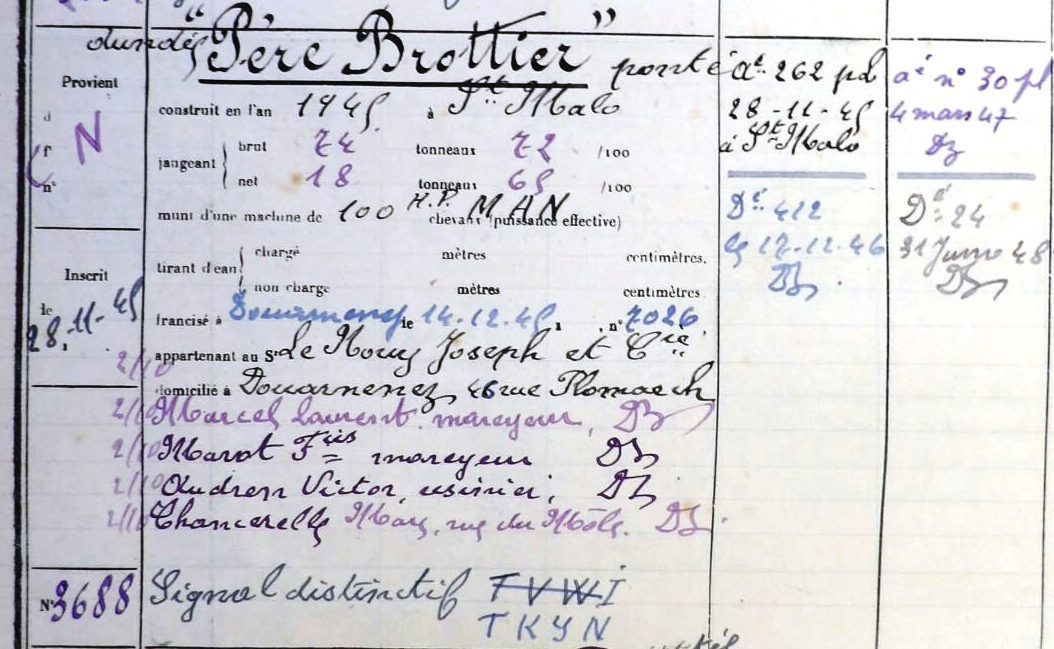 dundé "Père Brottier" ponté
Provient
d
f
n°
N
construit en l'an 1945 à St Malo
jaugeant
brut 74 tonneaux 72 /100
net 18 tonneaux 65 /100
muni d'une machine de 100 H.P. MAN chevaux (puissance effective)
tirant d'eau
chargé mètres centimètres.
non charge mètres centimètres
Inscrit
le
28.11-45
francisé à Douarnenez le 14.12.45, n° 7026,
2/10
appartenant au Sr Le Houy Joseph et Cie
domicilié à Douarnenez, 46 rue Plomarch
2/10 Marcel Laurent, mareyeur, DZ
2/10 Marot Fçis mareyeur DZ
2/10 Audren Victor, usinier, DZ
2/10 Chancerelle Marc, rue du Môle. DZ
N° 3688
Signal distinctif TVWI
TKYN
at. 262 pl
28-11-45
à St Malo
Dé. 412
le 17-12-46
DZ
at n° 30 pl
4 mars 47
DZ
Dé. 24
DZ